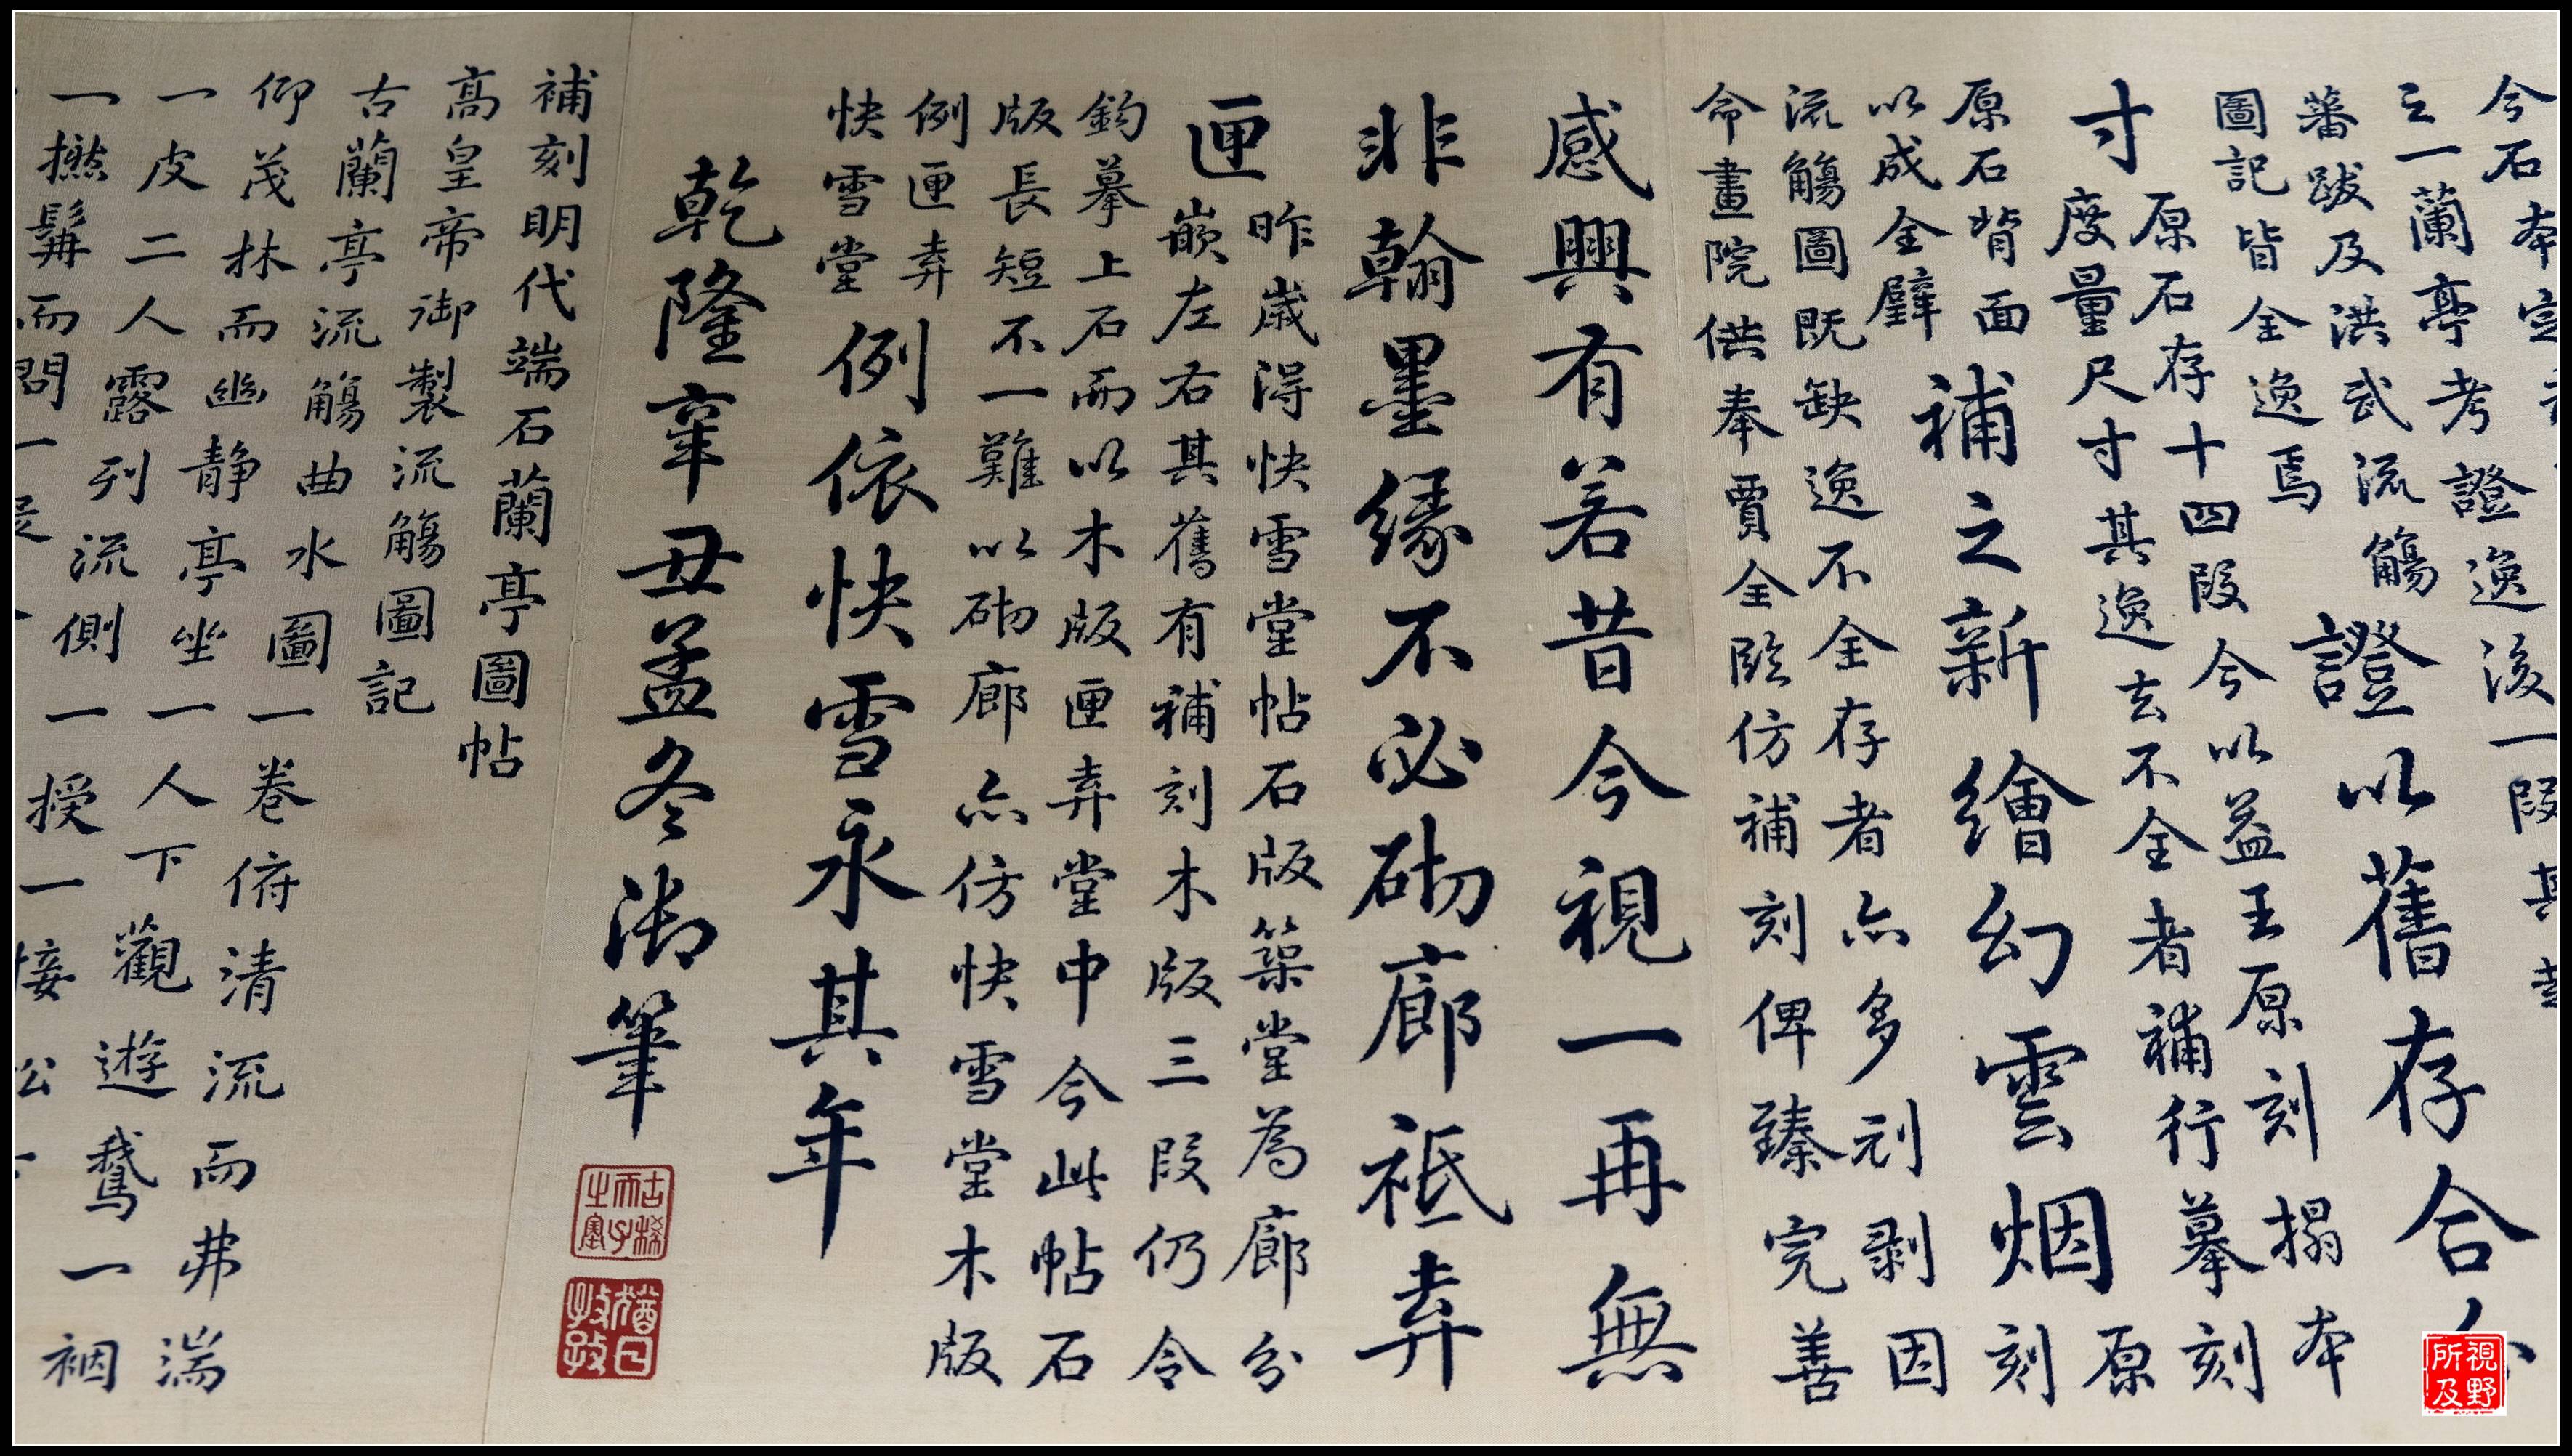 今石本定
三一蘭亭考證逸後一段其
蕃跋及洪武流觴
圖記皆全逸焉
證以舊存合
寸
原石存十四段今以益王原刻搨本
度量尺寸其逸去不全者補行摹刻
補之新繪幻雲烟
原石背面
以成全璧
刻原
流觴圖既缺逸不全存者亦多刓剥因
命畫院供奉賈全臨仿補刻俾臻完善
感興有若昔今視一再無
非翰墨緣不必砌廊祗弆
匣
昨歲得快雪堂帖石版築堂為廊分
嵌左右其舊有補刻木版三段仍令
鈎摹上石而以木版匣弆堂中今此帖石
版長短不一難以砌廊亦仿快雪堂木版
例匣弆
快雪堂
例依快雪永其年
乾隆辛丑孟冬御筆
古稀
天子
之寶
猶日
孜孜
補刻明代端石蘭亭圖帖
高皇帝御製流觴圖記
古蘭亭流觴曲水圖一卷俯清流而弗湍
仰茂林而幽静亭坐一人下觀遊鵞一裀
一皮二人露列流側一授一接
一撚髯而問一
視野
所及